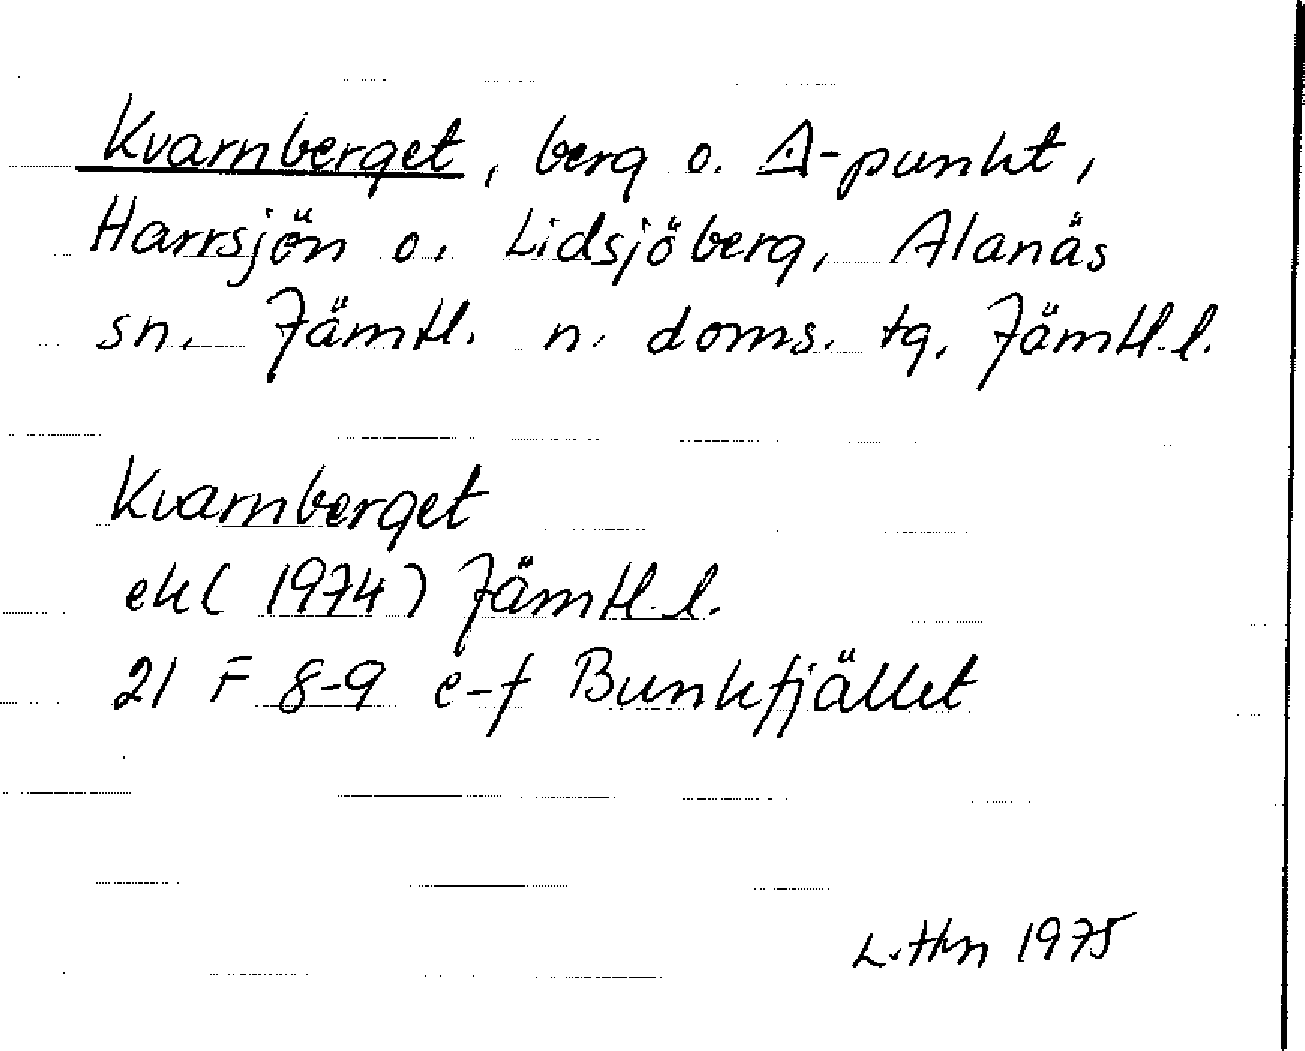 Kvarnberget, berg o. △-punkt,
Harrsjön o. Lidsjöberg, Alanäs
sn. Jämtl. n. doms. tg. Jämtl. l.
Kvarnberget
ek (1974) Jämtl. l.
21 F 8-9 e-f Bunkfjället
L. Hn 1975